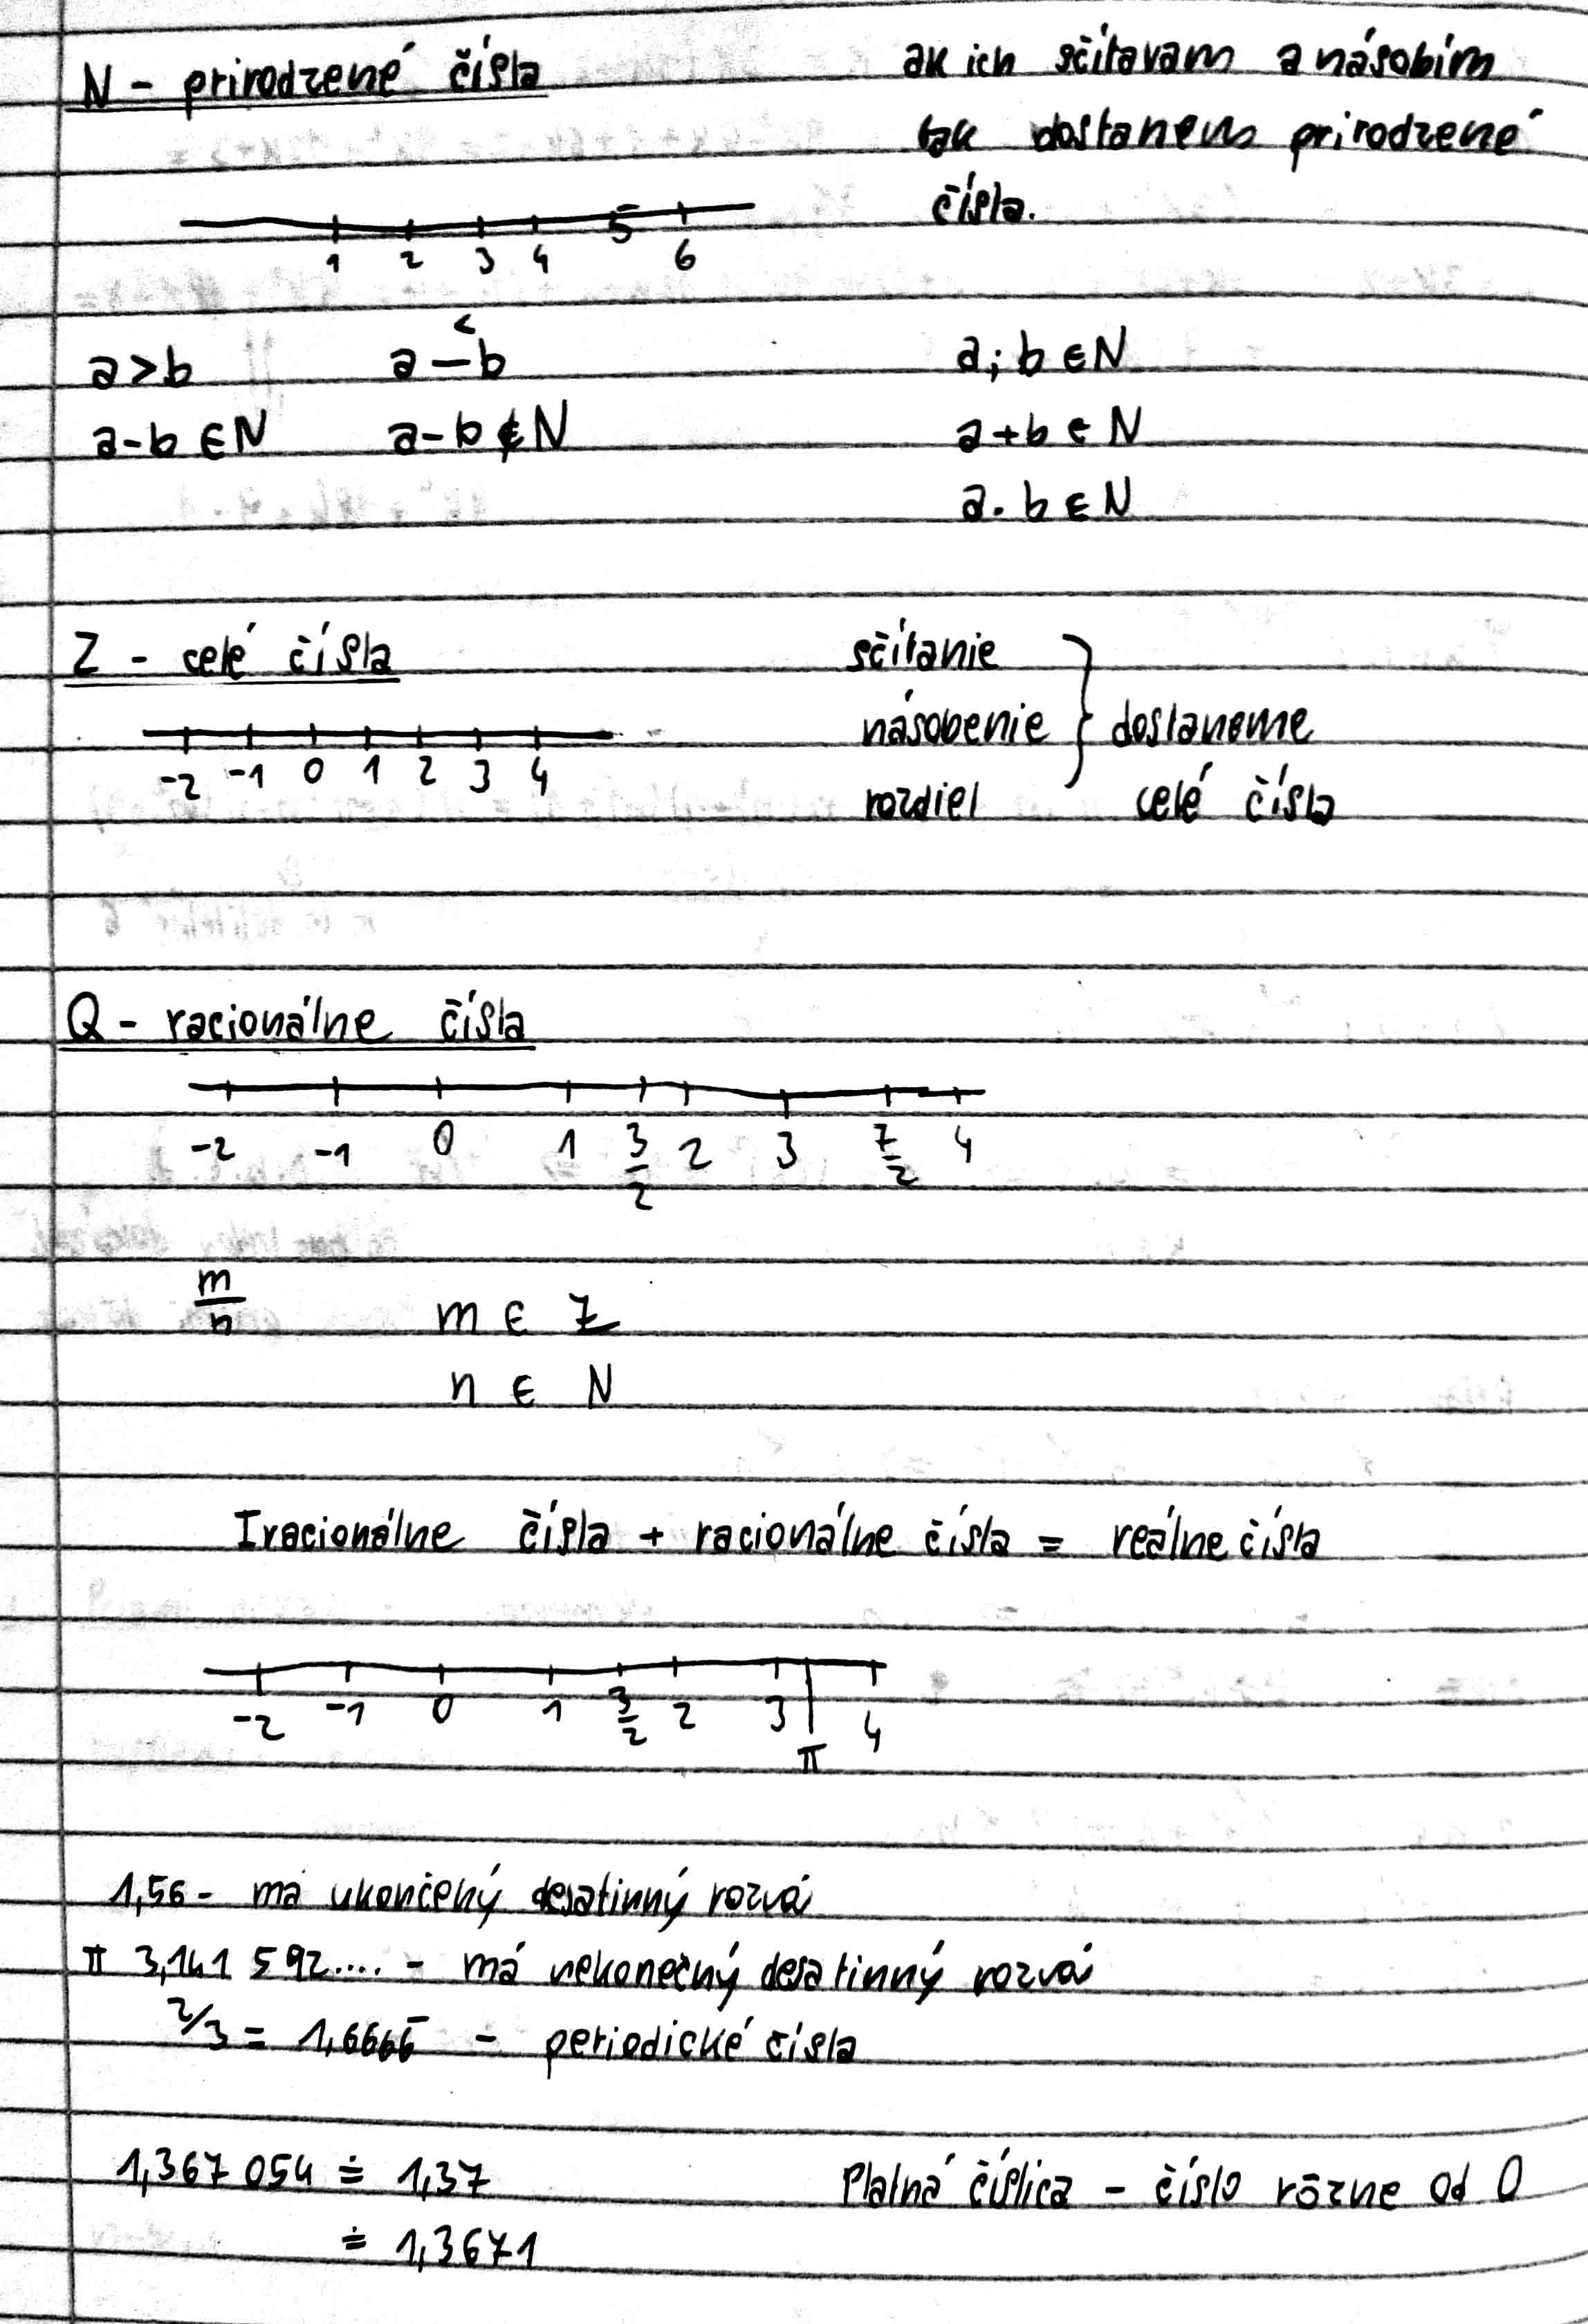 N - prirodzené čísla
ak ich sčítavam a násobím
tak dostanem prirodzené
čísla.
1 2 3 4 5 6
a > b
a - b ∈ N
a < b
a - b ∉ N
a; b ∈ N
a + b ∈ N
a . b ∈ N
Z - celé čísla
-2 -1 0 1 2 3 4
sčítanie
násobenie } dostaneme
rozdiel celé čísla
Q - racionálne čísla
-2 -1 0 1 3/2 2 3 7/2 4
m/n m ∈ Z
n ∈ N
Iracionálne čísla + racionálne čísla = reálne čísla
-2 -1 0 1 3/2 2 3 π 4
1,56 - má ukončený desatinný rozvoj
π 3,141 592.... - má nekonečný desatinný rozvoj
2/3 = 1,6666̅ - periodické čísla
1,367 054 ≐ 1,37
≐ 1,3671
Platná číslica - číslo rôzne od 0